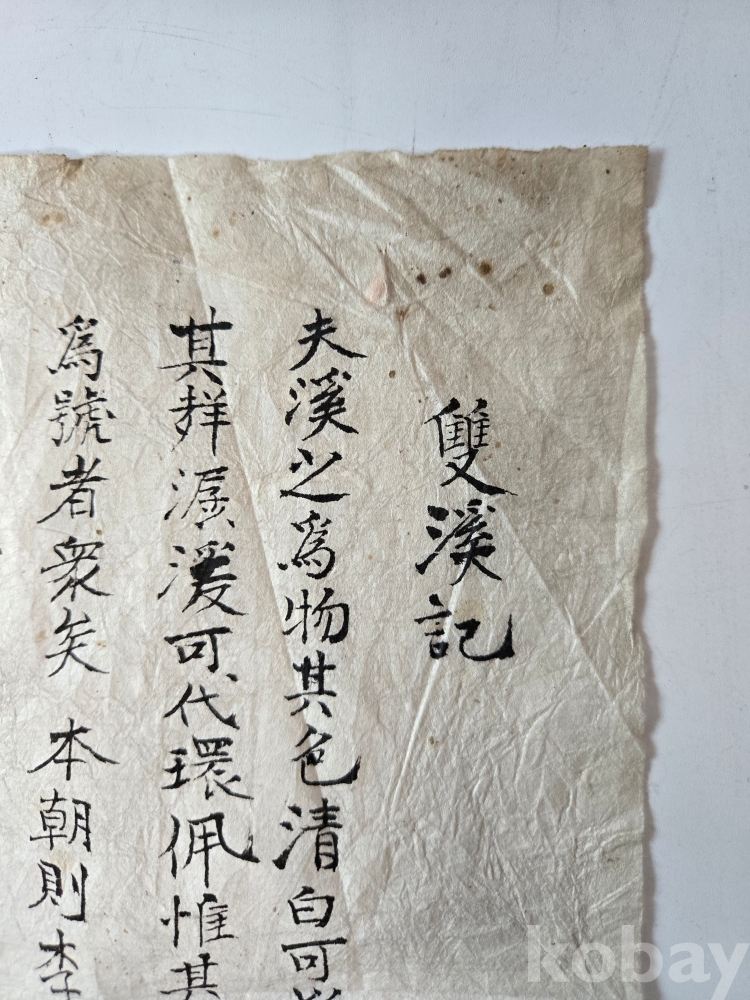 雙溪記
夫溪之爲物其色清白可
其潺湲可代環佩惟其
爲號者衆矣 本朝則李
kobay